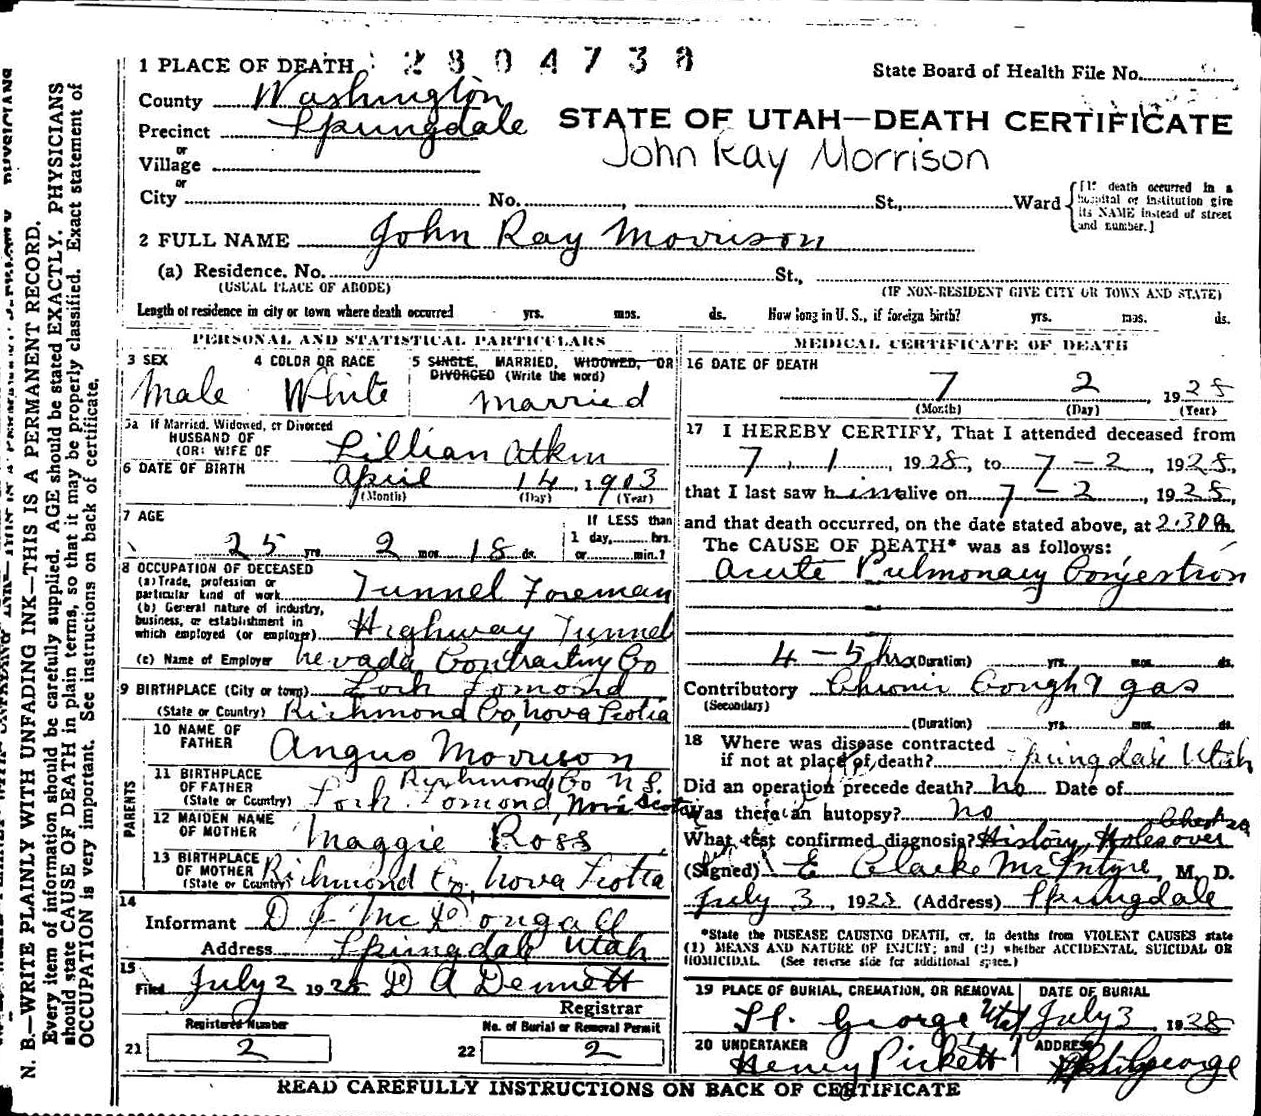 1 PLACE OF DEATH 2804738
State Board of Health File No.
County Washington
Precinct Springdale
STATE OF UTAH—DEATH CERTIFICATE
or
Village
John Ray Morrison
or
City No. St., Ward
[If death occurred in a
hospital or institution give
its NAME instead of street
and number.]
2 FULL NAME John Ray Morrison
(a) Residence. No. St.,
(USUAL PLACE OF ABODE) (IF NON-RESIDENT GIVE CITY OR TOWN AND STATE)
Length of residence in city or town where death occurred yrs. mos. ds. How long in U. S., if foreign birth? yrs. mos. ds.
PERSONAL AND STATISTICAL PARTICULARS
3 SEX 4 COLOR OR RACE 5 SINGLE, MARRIED, WIDOWED, OR
DIVORCED (Write the word)
Male White Married
5a If Married, Widowed, or Divorced
HUSBAND OF
(OR) WIFE OF Lillian Atkin
6 DATE OF BIRTH April 14, 1903
(Month) (Day) (Year)
7 AGE If LESS than
1 day, hrs.
25 yrs. 2 mos. 18 ds. or min.?
8 OCCUPATION OF DECEASED
(a) Trade, profession or
particular kind of work Tunnel Foreman
(b) General nature of industry,
business, or establishment in
which employed (or employer) Highway Tunnel
(c) Name of Employer Nevada Contracting Co
9 BIRTHPLACE (City or town) Loch Lomond
(State or Country) Richmond Co, Nova Scotia
PARENTS
10 NAME OF
FATHER Angus Morrison
11 BIRTHPLACE
OF FATHER
(State or Country) Richmond Co N S.
Loch Lomond, Nova Scotia
12 MAIDEN NAME
OF MOTHER Maggie Ross
13 BIRTHPLACE
OF MOTHER
(State or Country) Richmond Co, Nova Scotia
14
Informant McDougall
Address Springdale Utah
15
Filed July 2 1928 D A Dennett
Registrar
Registered Number No. of Burial or Removal Permit
21 2 22 2
MEDICAL CERTIFICATE OF DEATH
16 DATE OF DEATH
7 2, 1928
(Month) (Day) (Year)
17 I HEREBY CERTIFY, That I attended deceased from
7, 1, 1928, to 7-2, 1928,
that I last saw him alive on 7-2, 1928,
and that death occurred, on the date stated above, at 2:30 a m.
The CAUSE OF DEATH* was as follows:
Acute Pulmonary Congestion
4-5 hrs (Duration) yrs. mos. ds.
Contributory Chronic Cough & gas
(Secondary)
(Duration) yrs. mos. ds.
18 Where was disease contracted
if not at place of death? Springdale Utah
Did an operation precede death? No Date of
Was there an autopsy? No
What test confirmed diagnosis? History, over
(Signed) E Clarke McIntyre, M. D.
July 3, 1928 (Address) Springdale
*State the DISEASE CAUSING DEATH, or, in deaths from VIOLENT CAUSES state
(1) MEANS AND NATURE OF INJURY; and (2) whether ACCIDENTAL, SUICIDAL OR
HOMICIDAL. (See reverse side for additional space.)
19 PLACE OF BURIAL, CREMATION, OR REMOVAL DATE OF BURIAL
St. George, Utah July 3, 1928
20 UNDERTAKER ADDRESS
Henry Pickett St George
READ CAREFULLY INSTRUCTIONS ON BACK OF CERTIFICATE
N. B.—WRITE PLAINLY WITH UNFADING INK—THIS IS A PERMANENT RECORD.
Every item of information should be carefully supplied. AGE should be stated EXACTLY. PHYSICIANS
should state CAUSE OF DEATH in plain terms, so that it may be properly classified. Exact statement of
OCCUPATION is very important. See instructions on back of certificate.